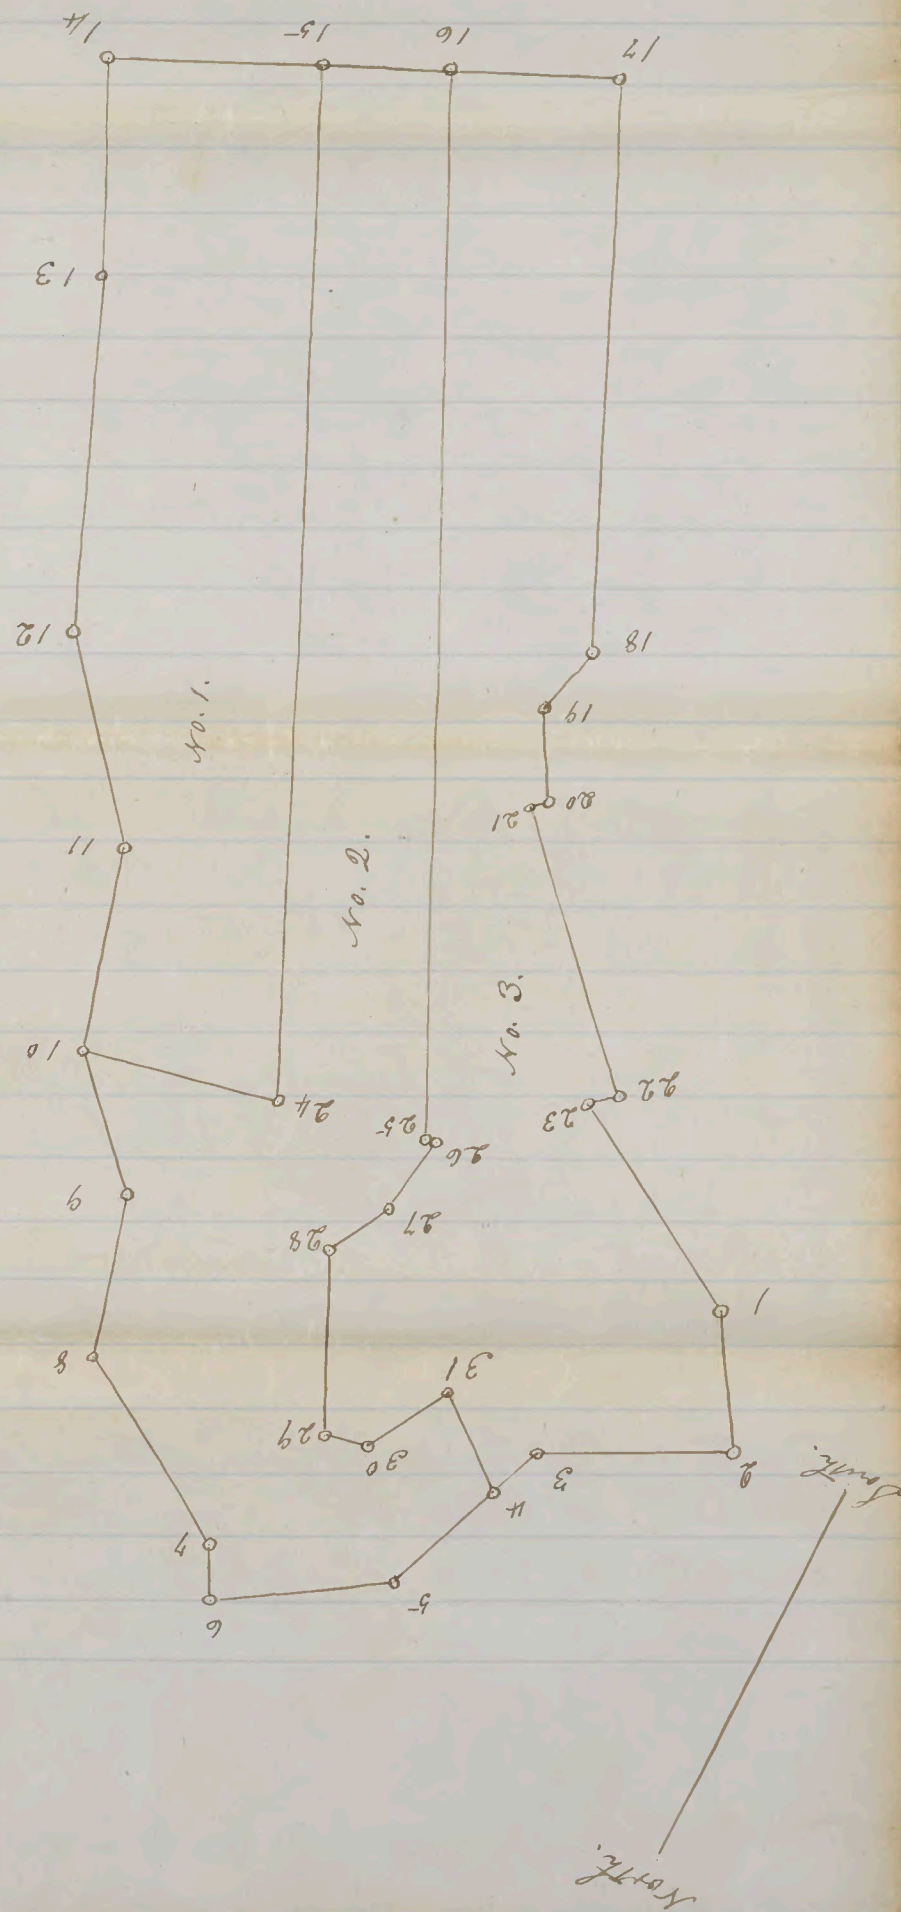 14
15
16
17
13
12
18
No. 1.
19
20
21
11
No. 2.
10
No. 3.
24
22
23
25
26
9
27
28
1
8
31
29
30
2
3
South.
4
7
5
6
North.